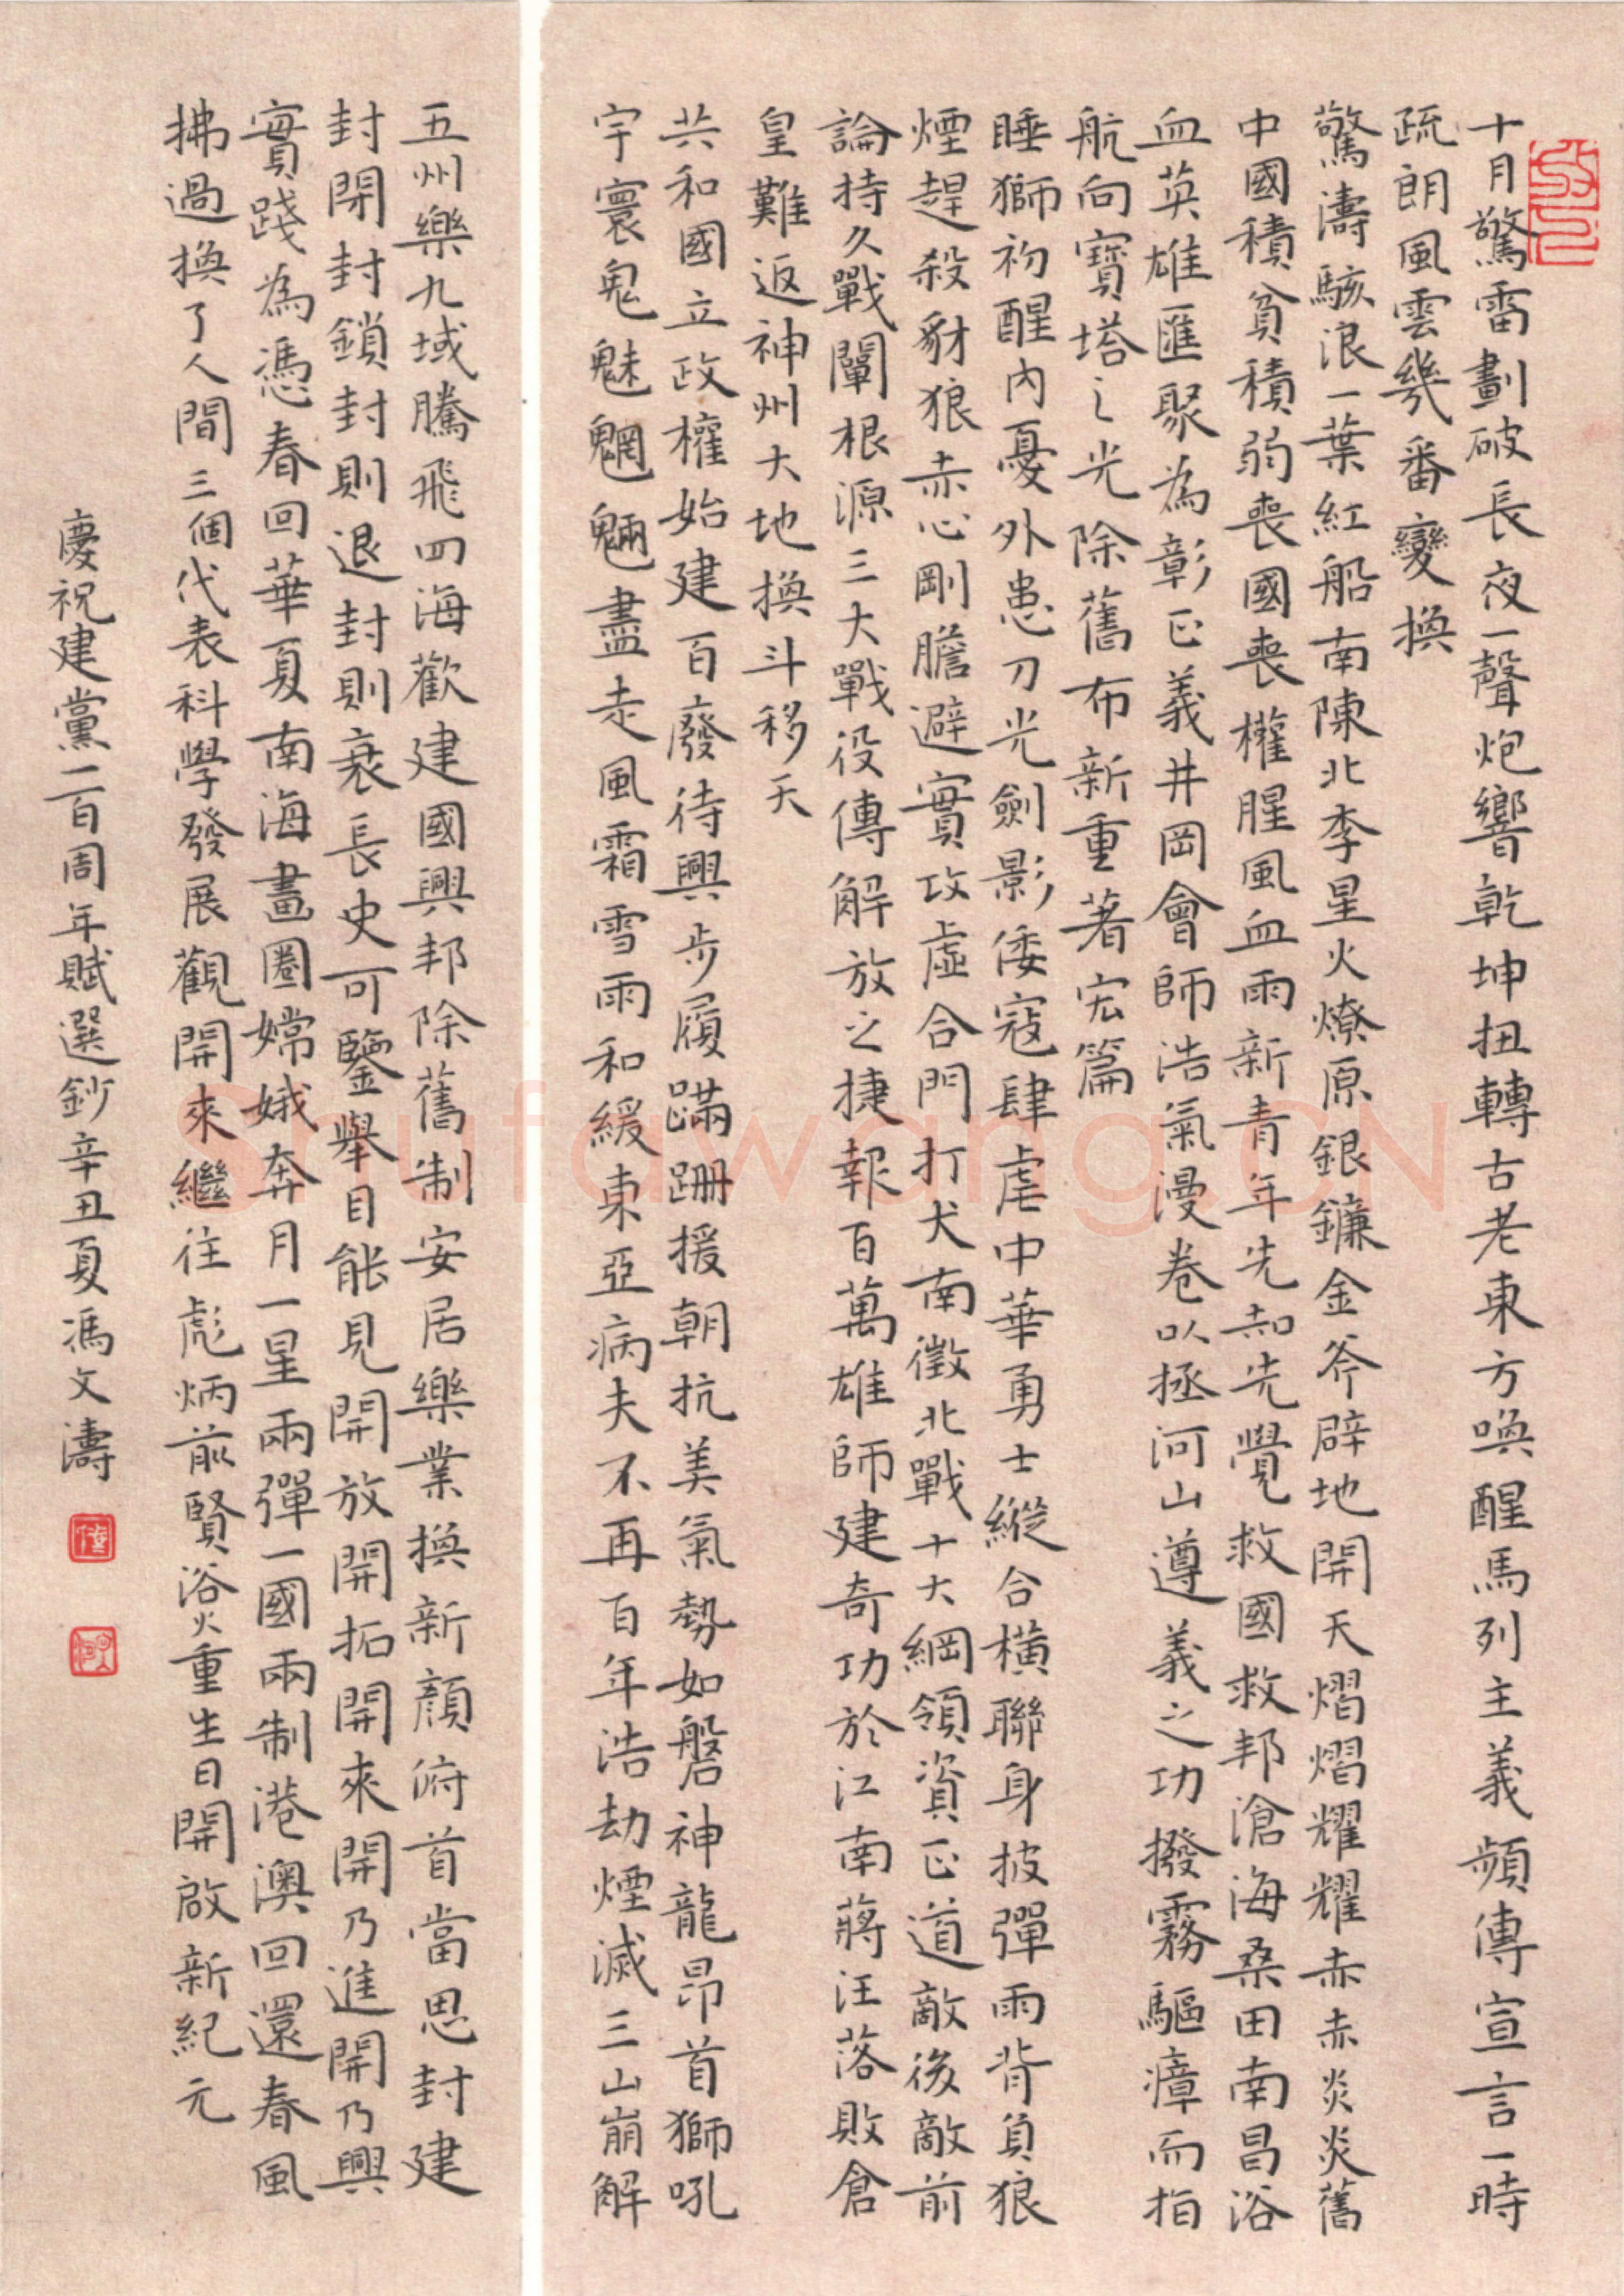 十月驚雷劃破長夜一聲炮響乾坤扭轉古老東方喚醒馬列主義頻傳宣言一時
疏朗風雲幾番變換
驚濤駭浪一葉紅船南陳北李星火燎原銀鐮金斧辟地開天熠熠耀耀赤赤炎炎舊
中國積貧積弱喪國喪權腥風血雨新青年先知先覺救國救邦滄海桑田南昌浴
血英雄匯聚為彰正義井岡會師浩氣漫卷以拯河山遵義之功撥霧驅瘴而指
航向寶塔之光除舊布新重著宏篇
睡獅初醒內憂外患刀光劍影倭寇肆虐中華勇士縱合橫聯身披彈雨背負狼
煙趕殺豺狼赤心剛膽避實攻虛合門打犬南徵北戰十大綱領資正道敵後敵前
論持久戰闡根源三大戰役傳解放之捷報百萬雄師建奇功於江南蔣汪落敗倉
皇難返神州大地換斗移天
共和國立政權始建百廢待興步履蹣跚援朝抗美氣勢如磐神龍昂首獅吼
宇寰鬼魅魍魎盡走風霜雪雨和緩東亞病夫不再百年浩劫煙滅三山崩解
五州樂九域騰飛四海歡建國興邦除舊制安居樂業換新顏俯首當思封建
封閉封鎖封則退封則衰長史可鑒舉目能見開放開拓開來開乃進開乃興
實踐為憑春回華夏南海畫圈嫦娥奔月一星兩彈一國兩制港澳回還春風
拂過換了人間三個代表科學發展觀開來繼往彪炳前賢浴火重生日開啟新紀元
慶祝建黨一百周年賦選鈔辛丑夏馮文濤
Shufawang.CN